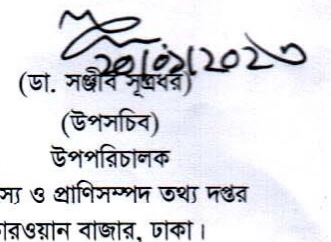 ২০/০১/২০২৩
(ডা. সঞ্জীব সূত্রধর)
(উপসচিব)
উপপরিচালক
ও প্রাণিসম্পদ তথ্য দপ্তর
বাজার, ঢাকা।